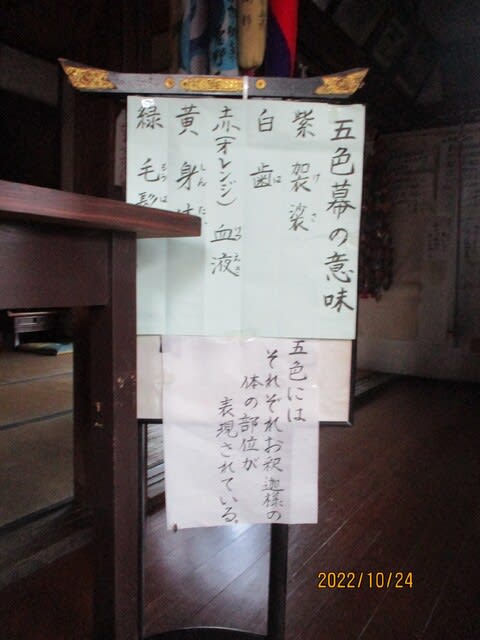 五色幕の意味
紫 袈裟
けさ
白 歯
は
赤(オレンジ) 血液
けつえき
黄 身
しん
緑 毛髪
もうは
五色には
それぞれお釈迦様の
体の部位が
表現されている。
2022/10/24